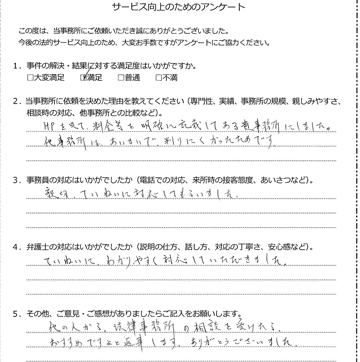 サービス向上のためのアンケート
この度は、当事務所にご依頼いただき誠にありがとうございました。
今後の法的サービス向上のため、大変お手数ですがアンケートにご協力ください。
1．事件の解決・結果に対する満足度はいかがですか。
□大変満足 ☑満足 □普通 □不満
2．当事務所に依頼を決めた理由を教えてください（専門性、実績、事務所の規模、親しみやすさ、
相談時の対応、他事務所との比較など）。
HPを見て、料金等を明確に記載してある貴事務所にしました。
他事務所は、あいまいで判りにくかったためです
3．事務員の対応はいかがでしたか（電話での対応、来所時の接客態度、あいさつなど）。
親切、ていねいに対応してもらいました。
4．弁護士の対応はいかがでしたか（説明の仕方、話し方、対応の丁寧さ、安心感など）。
ていねいに、わかりやすく対応していただきました。
5．その他、ご意見・ご感想がありましたらご記入をお願いします。
他の人から、法律事務所の相談を受けたら、
おすすめですよと返事します。ありがとうございました。